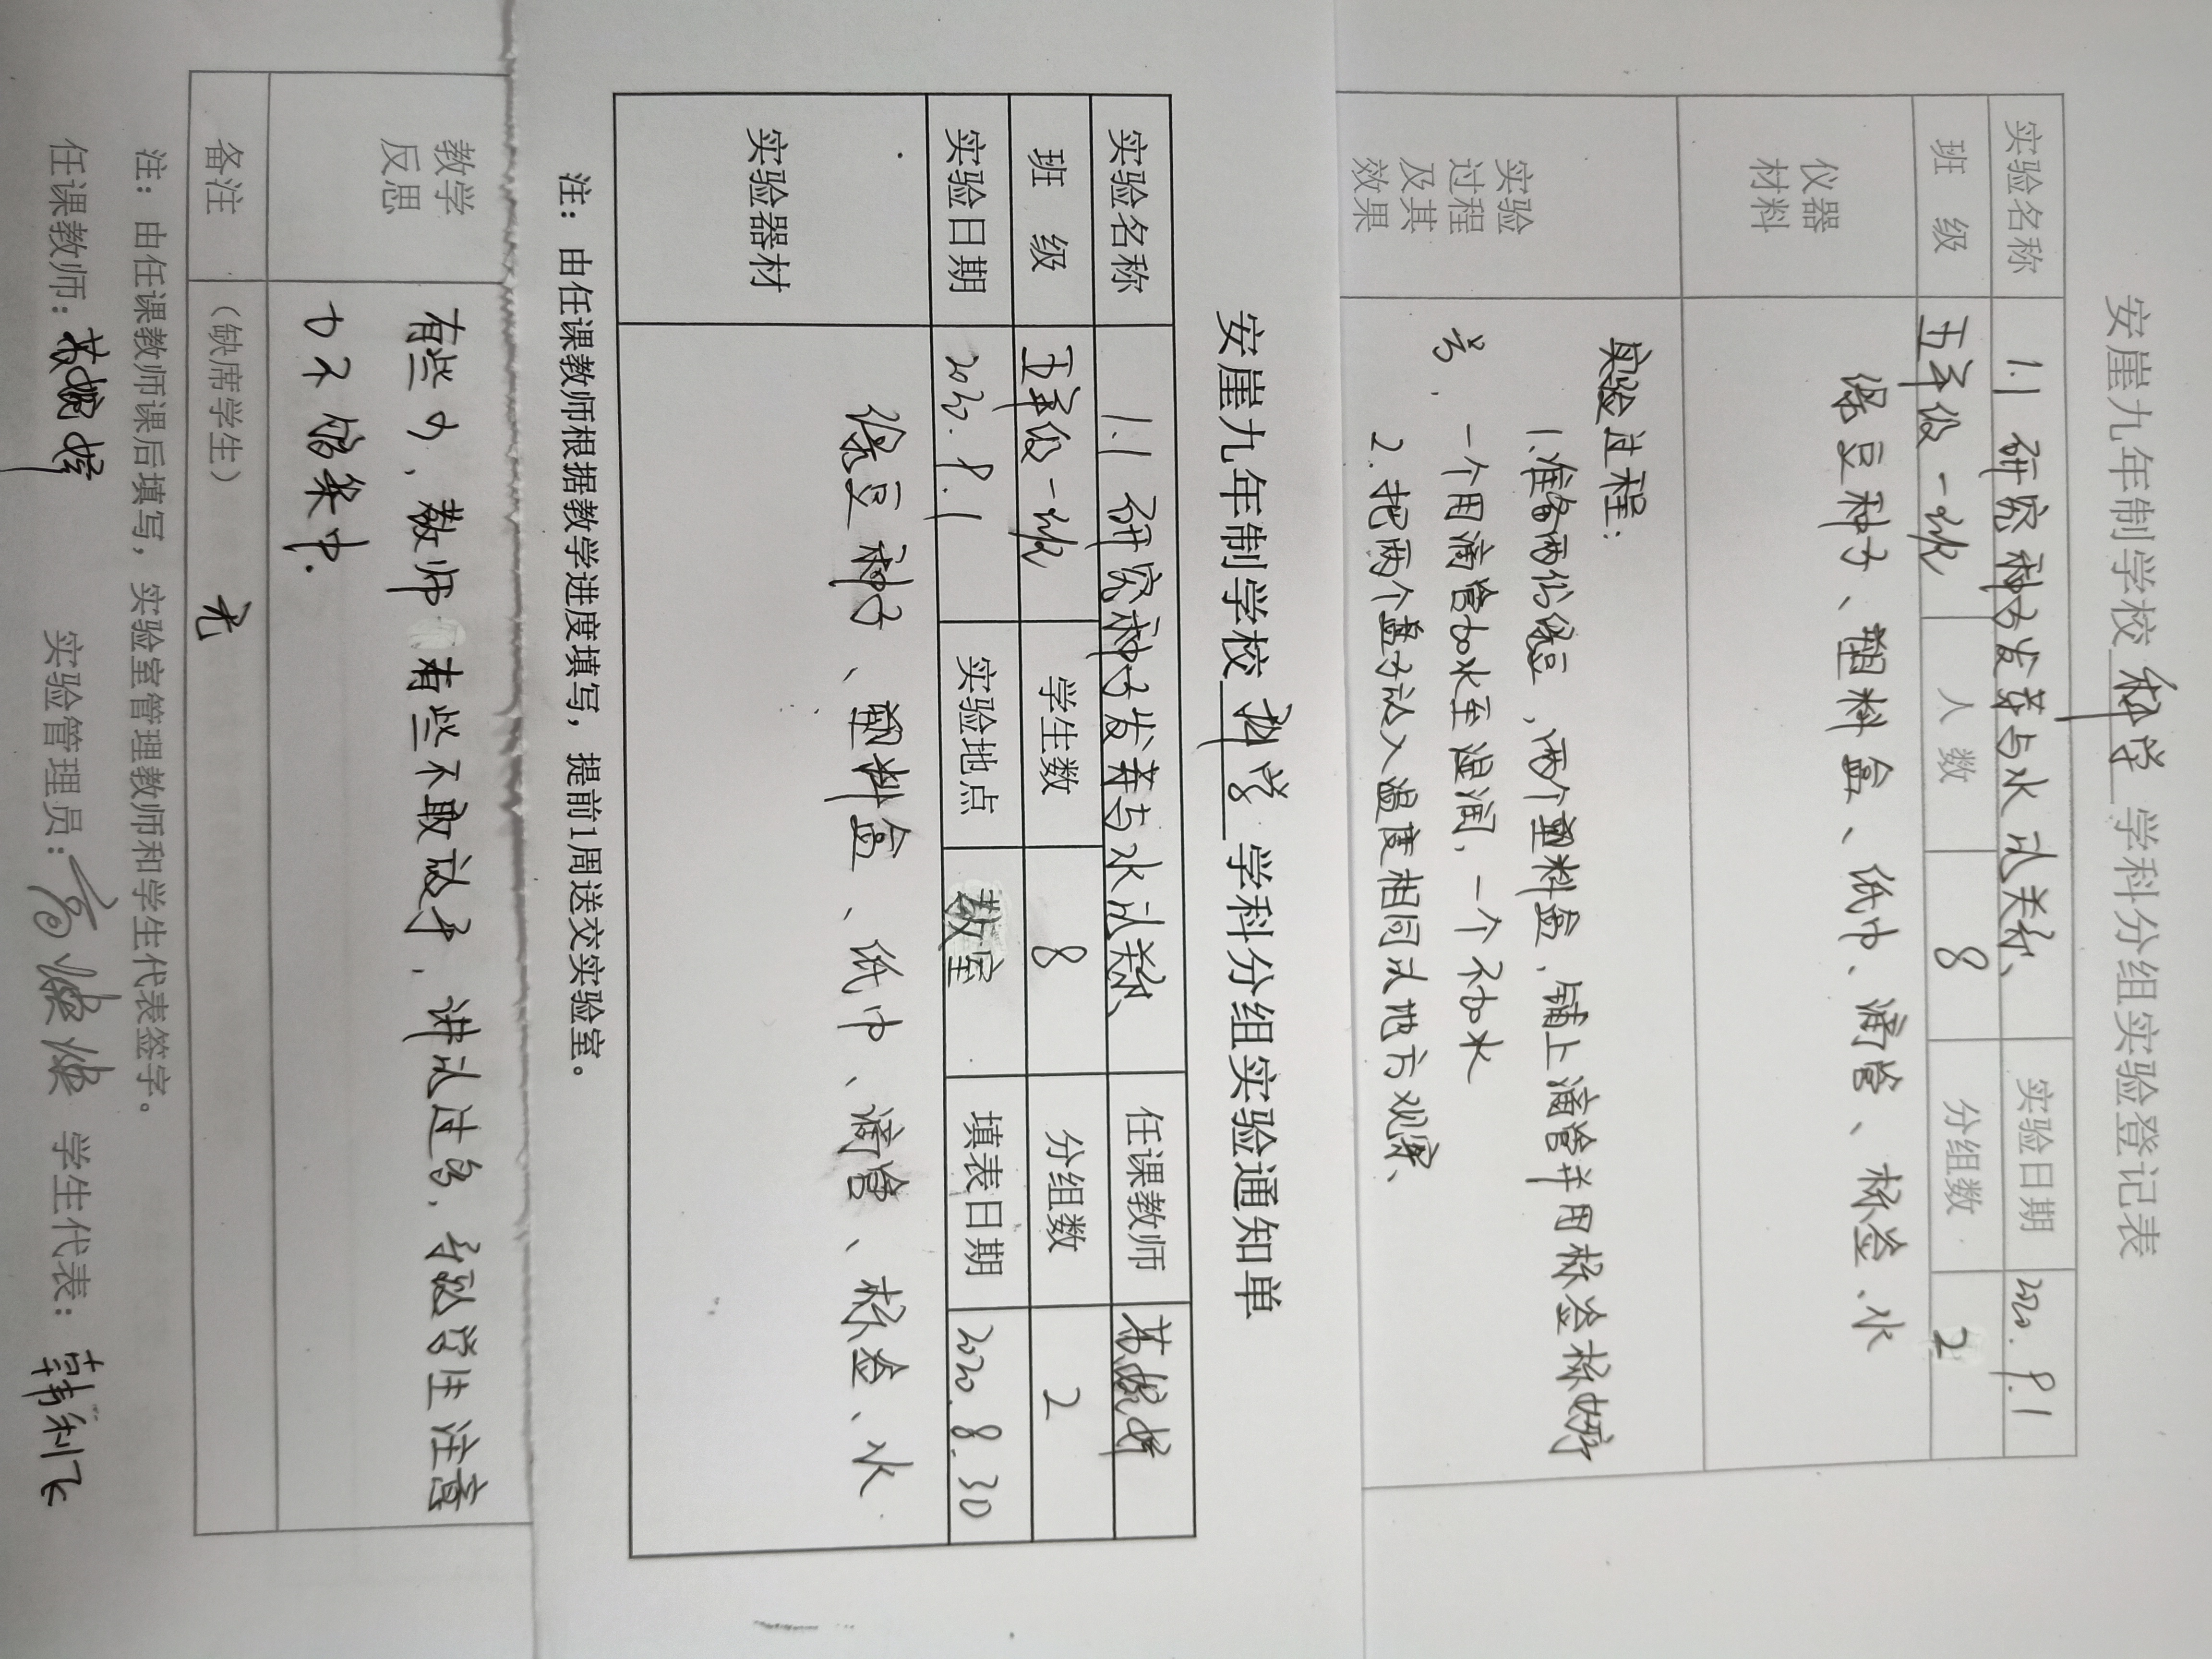 安崖九年制学校 科学 学科分组实验登记表
实验名称 1.1 研究种子发芽与水的关系 实验日期 2020.9.1
班 级 五年级一班 人数 8 分组数 2
仪器材料 绿豆种子、塑料盒、纸巾、滴管、标签、水
实验过程及其效果
实验过程:
1.准备两份绿豆,两个塑料盒,铺上滴管并用标签标好序
号.一个用滴管加水至湿润,一个不加水
2.把两个盒子放入温度相同的地方观察、
安崖九年制学校 科学 学科分组实验通知单
实验名称 1.1 研究种子发芽与水的关系、 任课教师
班 级 五年级一班 学生数 8 分组数 2
实验日期 2020.9.1 实验地点 教室 填表日期 2020.8.30
实验器材 绿豆种子、塑料盒、纸巾、滴管、标签、水
注：由任课教师根据教学进度填写，提前1周送交实验室。
教学反思
有些,教师有些不敢放手,讲的过多,导致学生注意
力不够集中.
备注 (缺席学生) 无
注：由任课教师课后填写，实验室管理教师和学生代表签字。
任课教师: 实验管理员: 学生代表: 韩利飞